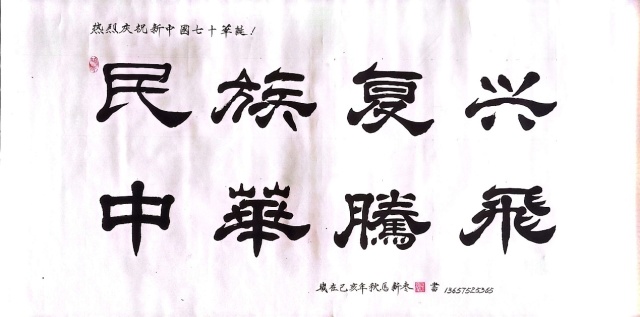 热烈庆祝新中国七十华诞!
民族复兴
中華騰飛
歲在己亥年秋馬新冬 書 13657525365